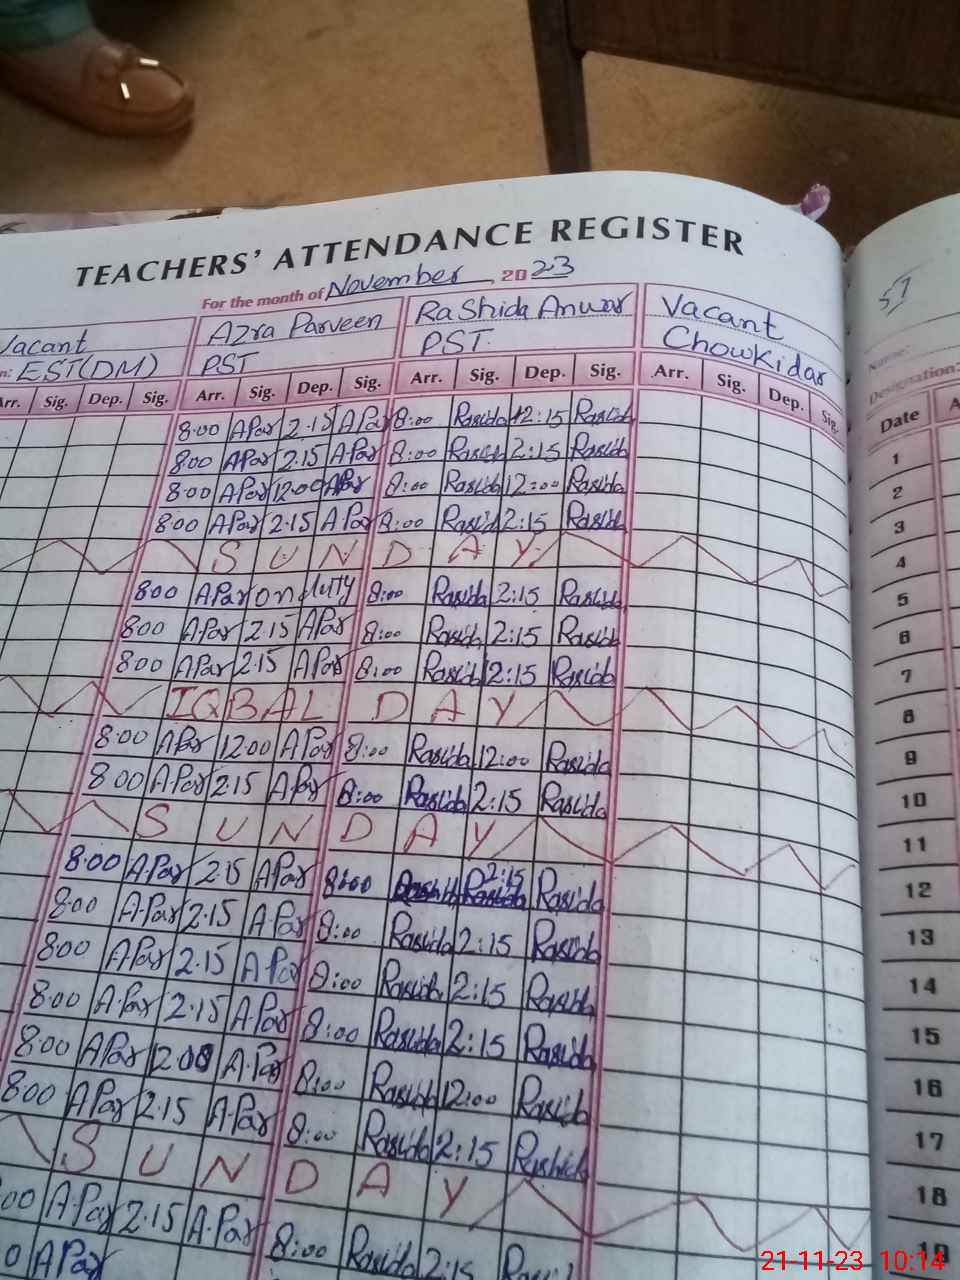 TEACHERS' ATTENDANCE REGISTER
For the month of November, 2023
57
Vacant Azra Parveen Rashida Anwar Vacant
EST(DM) PST PST. Chowkidar
Name:
Designation:
Arr. Sig. Dep. Sig. Arr. Sig. Dep. Sig. Arr. Sig. Dep. Sig. Arr. Sig. Dep. Sig. Date
8:00 APar 2.15 APar 8:00 Rasida 2:15 Rasida 1
8:00 APar 2.15 APar 8:00 Rasida 2:15 Rasida 2
8:00 APar 12.00 APar 8:00 Rasida 12:00 Rasida 3
8:00 APar 2.15 APar 8:00 Rasida 2:15 Rasida 4
SUNDAY 5
8:00 APar on duty 8:00 Rasida 2:15 Rasida 6
8:00 APar 2.15 APar 8:00 Rasida 2:15 Rasida 7
8:00 APar 2.15 APar 8:00 Rasida 2:15 Rasida 8
IQBAL DAY 9
8:00 APar 12.00 APar 8:00 Rasida 12:00 Rasida 10
8:00 APar 2.15 APar 8:00 Rasida 2:15 Rasida 11
SUNDAY 12
8:00 A.Par 2.15 A.Par 8:00 2:15 Rasida 13
8:00 A.Par 2.15 A.Par 8:00 Rasida 2:15 Rasida 14
8:00 A.Par 2.15 A.Par 8:00 Rasida 2:15 Rasida 15
8:00 A.Par 2.15 A.Par 8:00 Rasida 2:15 Rasida 16
8:00 APar 12.00 A.Par 8:00 Rasida 12:00 Rasida 17
8:00 APar 2.15 A.Par 8:00 Rasida 2:15 Rashida 18
SUNDAY 19
A.Par 2.15 A.Par 8:00 Rasida 2:15
APar
21-11-23 10:14